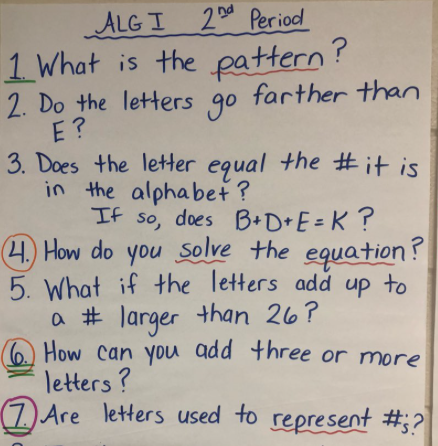 ALG I 2nd Period
1. What is the pattern?
2. Do the letters go farther than
E?
3. Does the letter equal the # it is
in the alphabet?
If so, does B+D+E=K?
4. How do you solve the equation?
5. What if the letters add up to
a # larger than 26?
6. How can you add three or more
letters?
7. Are letters used to represent #s?